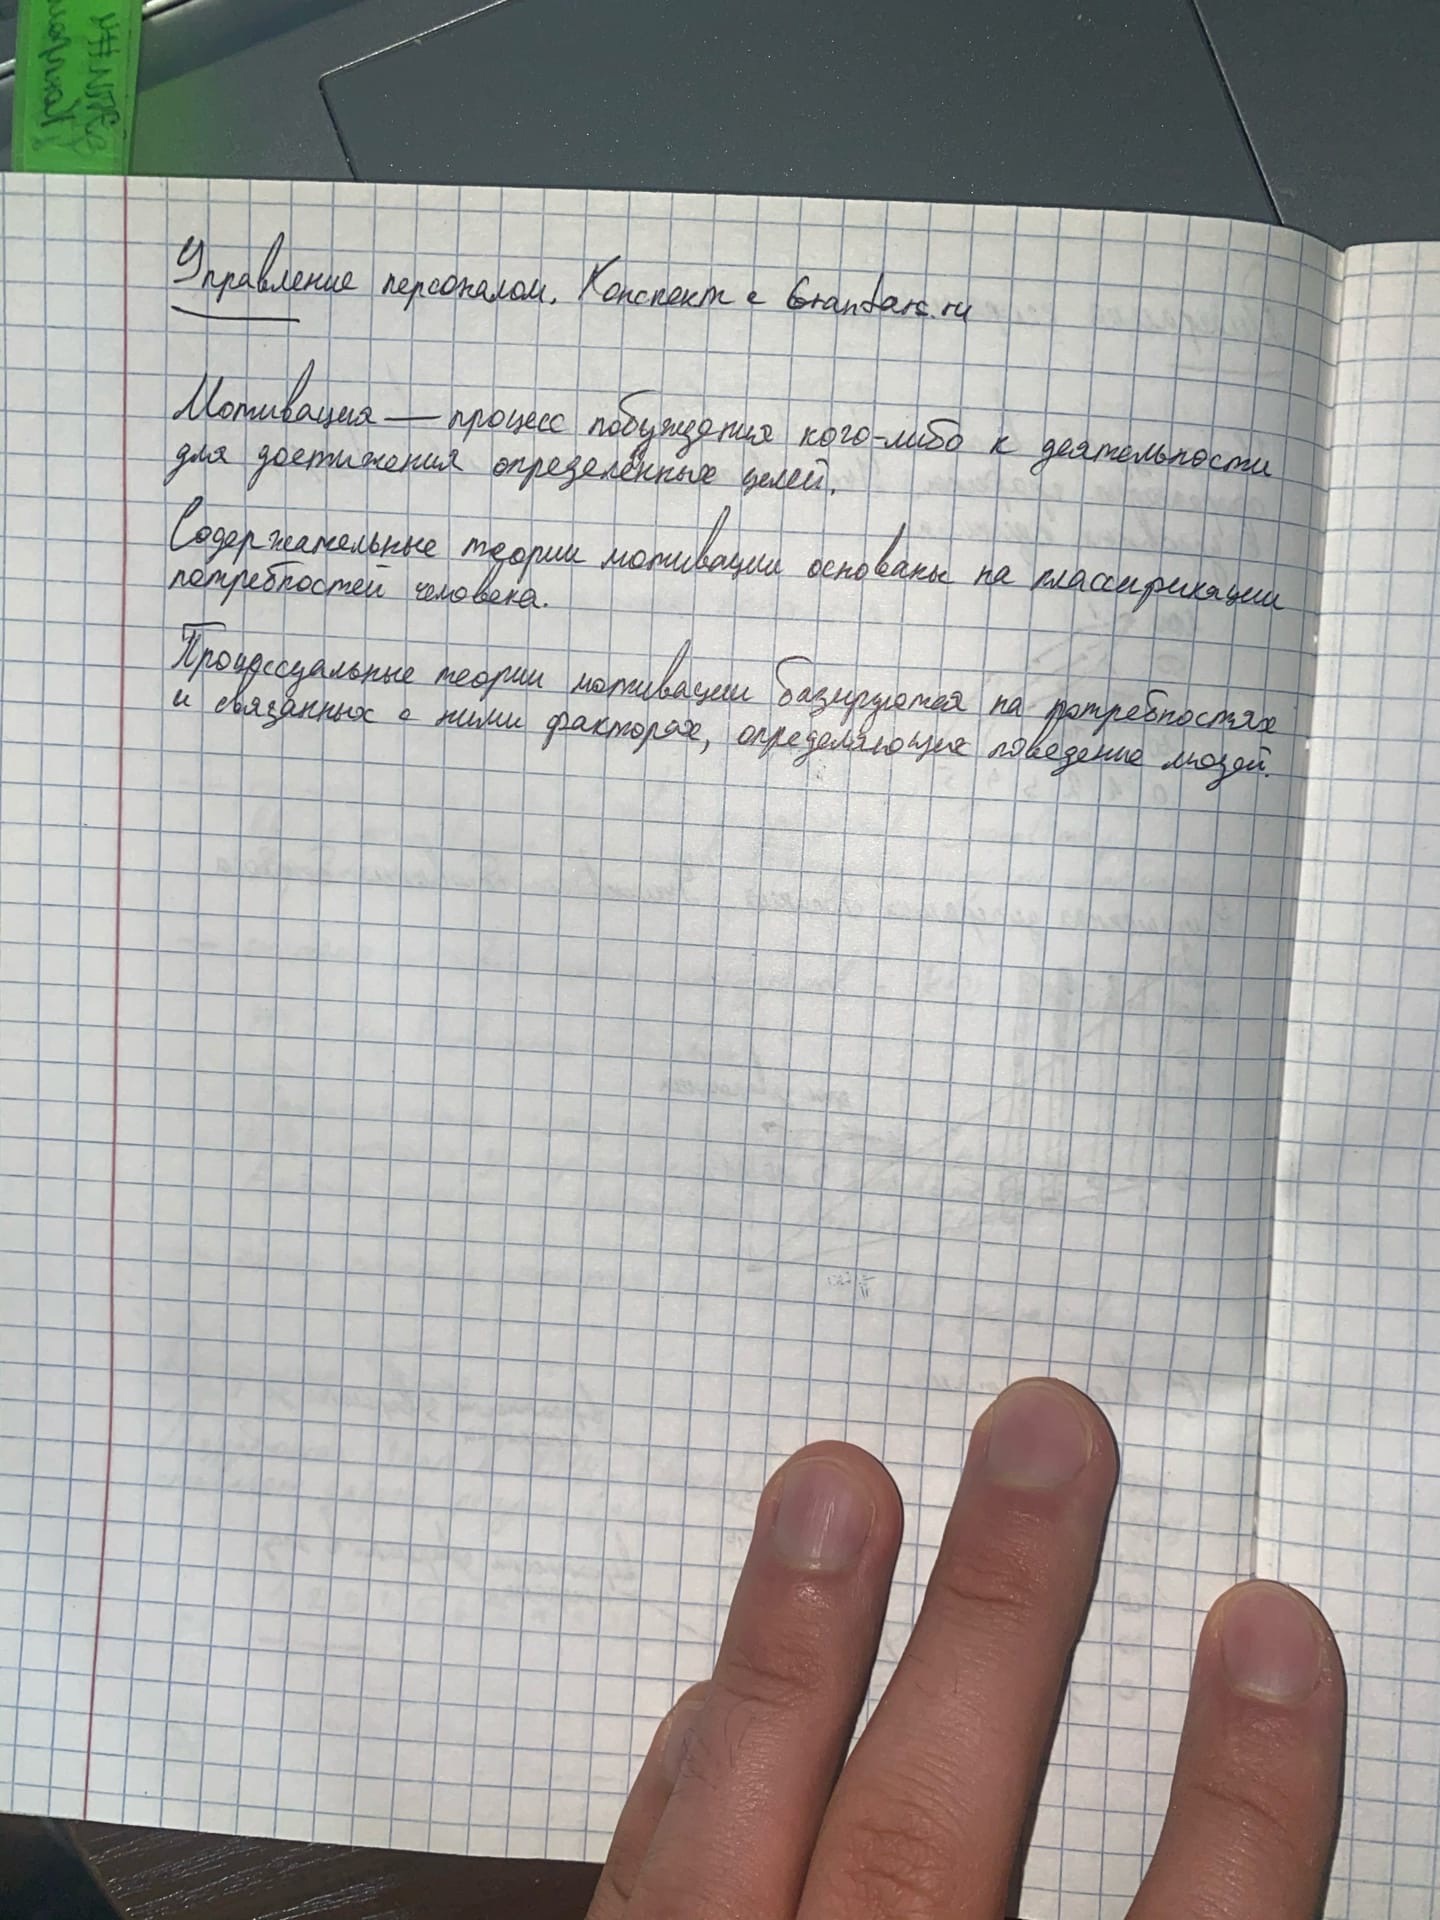 Управление персоналом. Конспект с Grandars.ru
Мотивация — процесс побуждения кого-либо к деятельности
для достижения определённых целей.
Содержательные теории мотивации основаны на классификации
потребностей человека.
Процессуальные теории мотивации базируются на потребностях
и связанных с ними факторах, определяющих поведение людей.